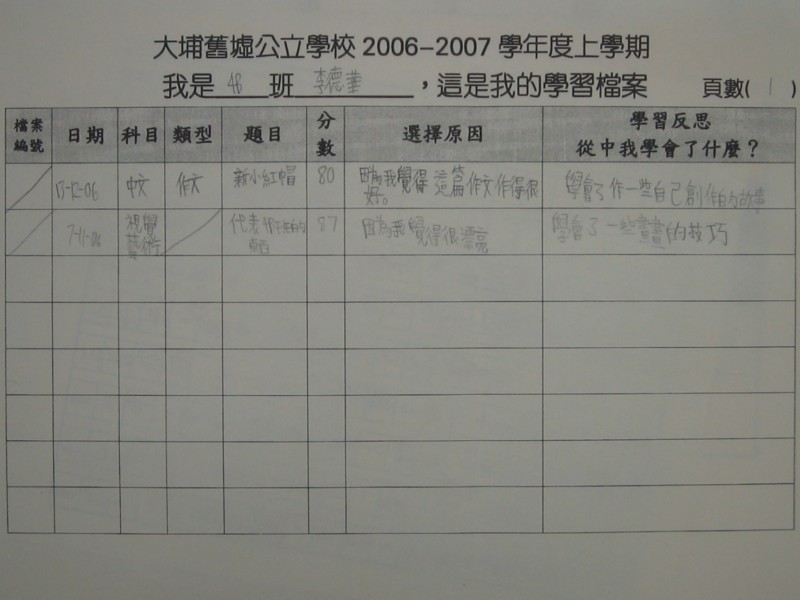 大埔舊墟公立學校 2006–2007 學年度上學期
我是 4B 班 李德華 ，這是我的學習檔案 頁數( 1 )
檔案編號 日期 科目 類型 題目 分數 選擇原因 學習反思
從中我學會了什麼？
15-12-06 中文 作文 新小紅帽 80 因為我覺得這篇作文作得很好。 學會了作一些自己創作的故事
7-11-06 視覺藝術 代表 的 87 因為我覺得很漂亮 學會了一些畫畫的技巧